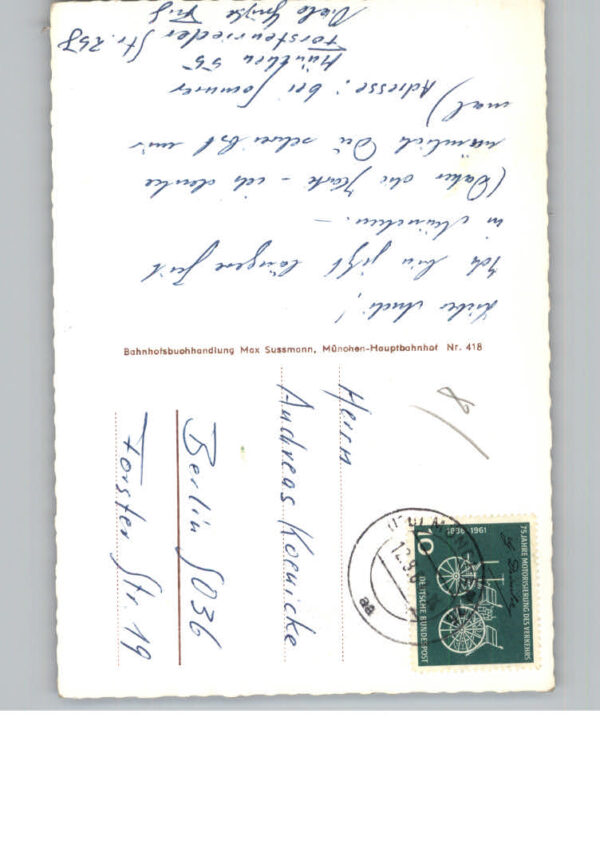 Lieber Andi!
Ich bin jetzt längere Zeit
in München. –
(Daher die Karte – ich denke
nämlich Du schreibst mir
mal)
Adresse: bei Sommer
München 55
Forstenrieder Str. 258
Viele Grüße
Bahnhofsbuchhandlung Max Sussmann, München-Hauptbahnhof Nr. 418
Herrn
Andreas Koenicke
Berlin SO36
Forster Str. 19
75 JAHRE MOTORISIERUNG DES VERKEHRS
1886-1961
10
DEUTSCHE BUNDESPOST
aa